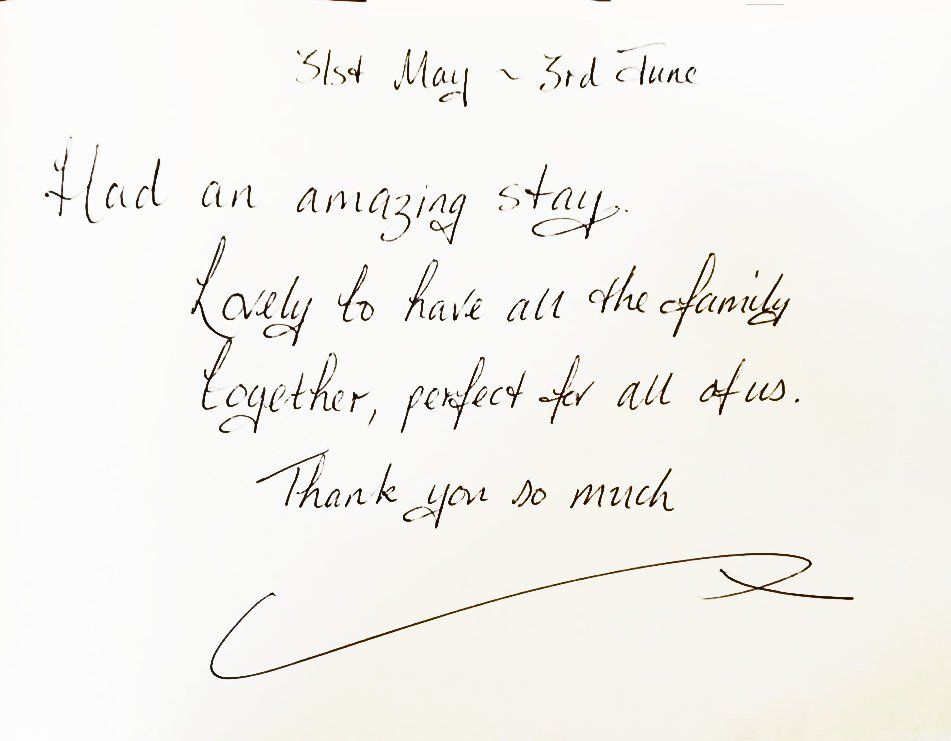 31st May ~ 3rd June
Had an amazing stay.
Lovely to have all the family
together, perfect for all of us.
Thank you so much